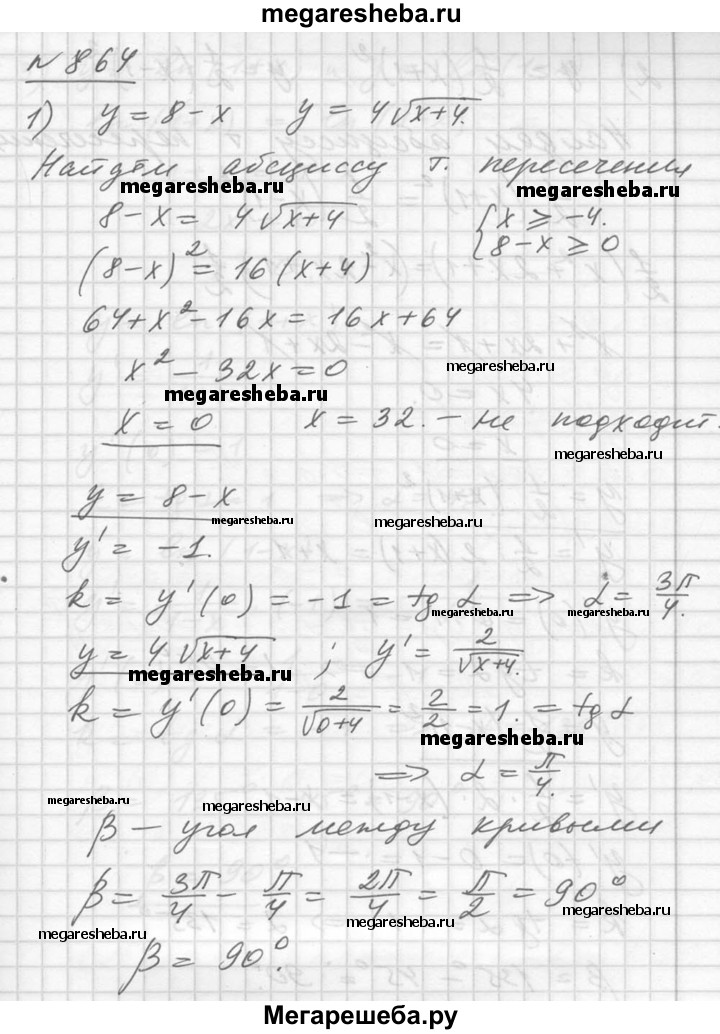 megaresheba.ru
№ 864
1) y = 8 - x   y = 4√(x+4).
Найдём абсциссу т. пересечения
megaresheba.ru megaresheba.ru
8 - x = 4√(x+4)   { x ≥ -4.
{ 8 - x ≥ 0
(8 - x)² = 16(x+4)
64 + x² - 16x = 16x + 64
x² - 32x = 0 megaresheba.ru
megaresheba.ru
x = 0   x = 32. - не подходит.
megaresheba.ru
y = 8 - x
megaresheba.ru megaresheba.ru
y' = -1.
k = y'(0) = -1 = tg α => α = 3π/4.
megaresheba.ru megaresheba.ru
y = 4√(x+4) ; y' = 2/√(x+4).
megaresheba.ru
k = y'(0) = 2/√(0+4) = 2/2 = 1. = tg α
megaresheba.ru
=> α = π/4.
megaresheba.ru megaresheba.ru
β - угол между кривыми
β = 3π/4 - π/4 = 2π/4 = π/2 = 90°
megaresheba.ru megaresheba.ru
β = 90°. megaresheba.ru
Мегарешеба.ру